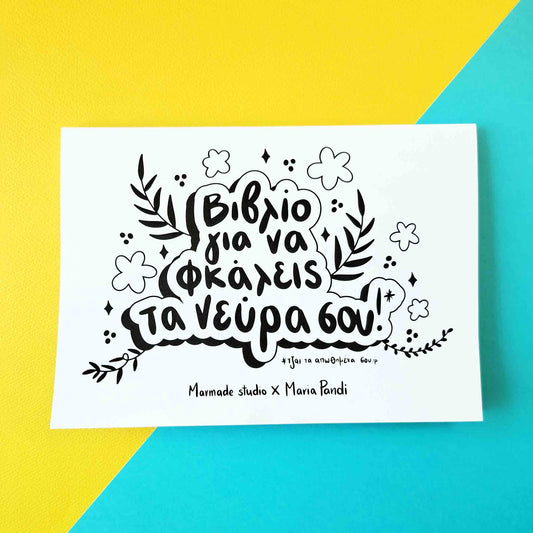 Βιβλίο
για να
φκάλεις
τα νεύρα σου!*
*τζαι τα απωθημένα σου :p
Marmade studio X Maria Pandi